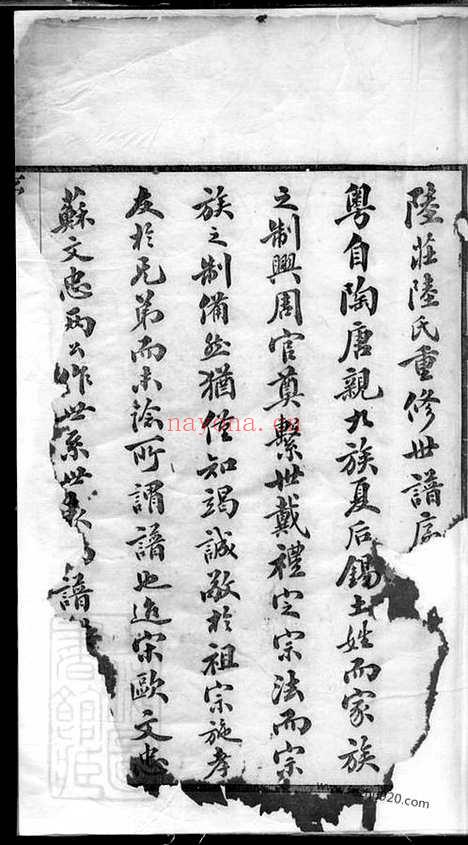 陸莊陸氏重修世譜序
粤自陶唐親九族夏后錫土姓而家族
之制興周官奠繫世戴禮定宗法而宗
族之制備然猶僅知竭誠敬於祖宗施孝
友於兄弟而未詮所謂譜也迨宋歐文忠
蘇文忠兩公作世系世表譜
nayona.cn
020.com